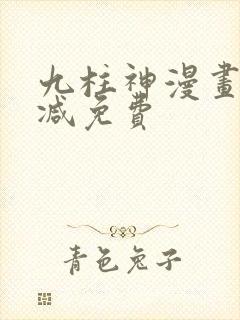 九柱神漫畫
减免費
青色兔子